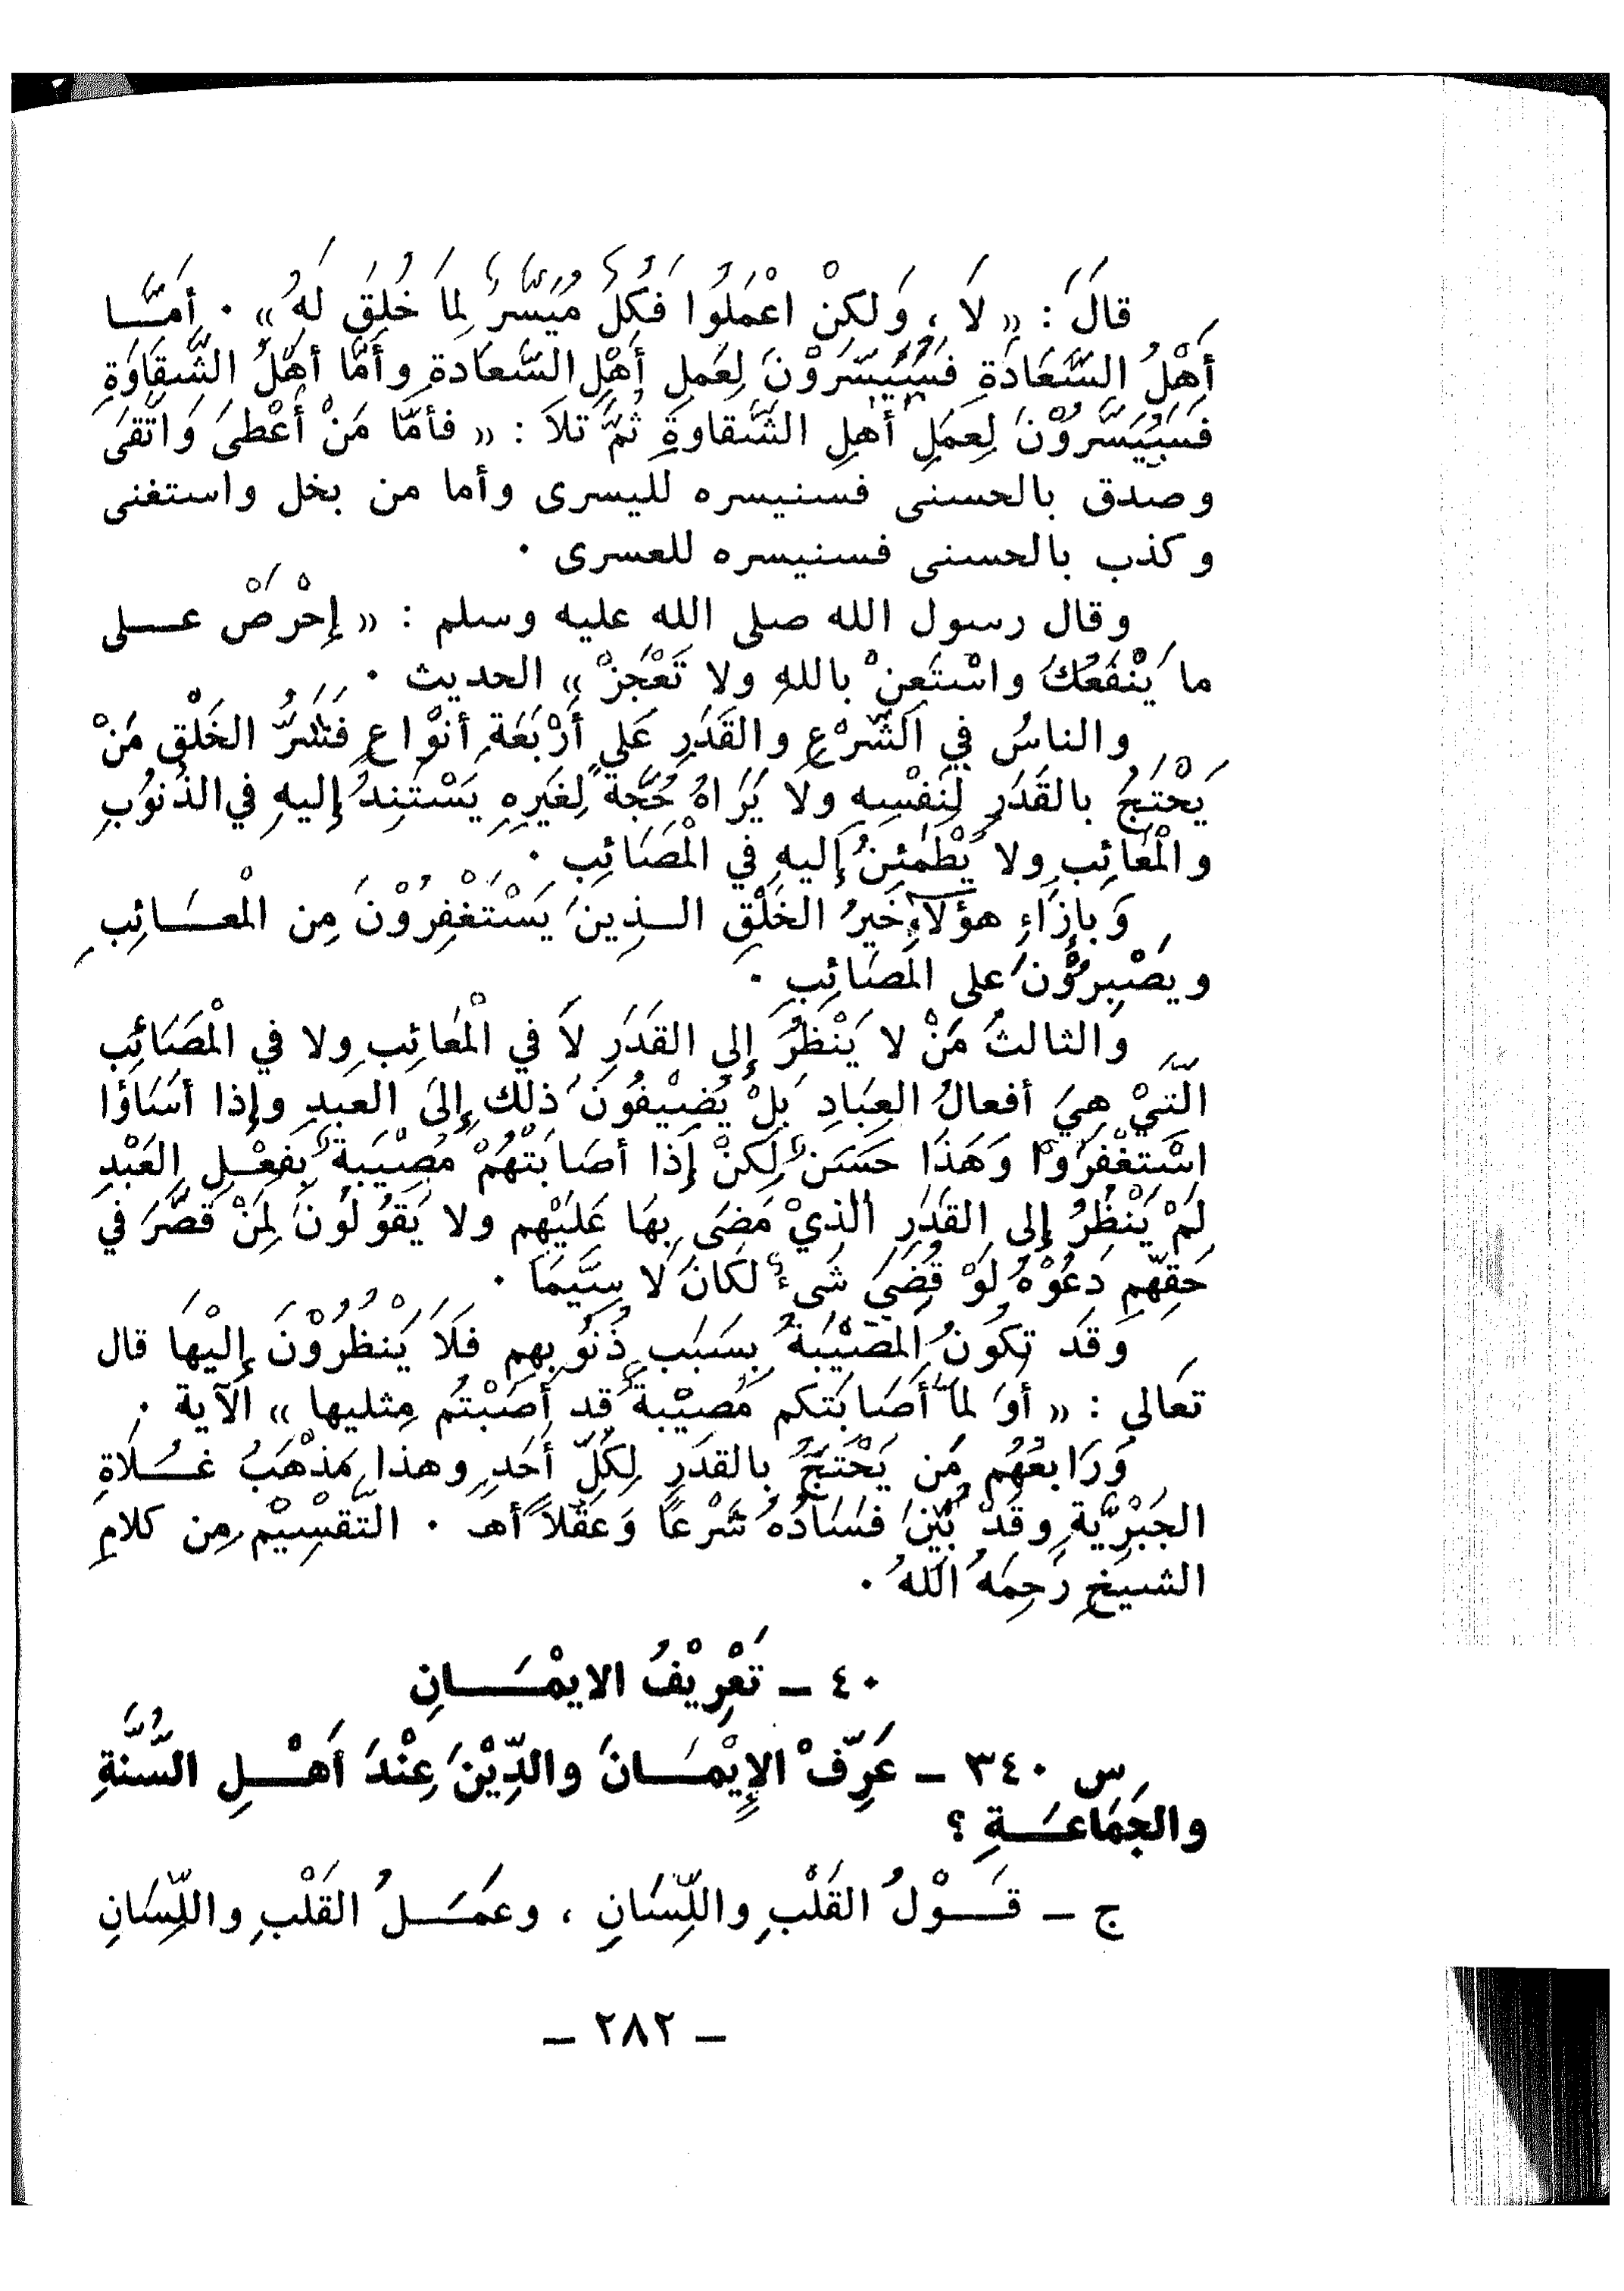 قَالَ : « لَا ، وَلكِنْ اعْمَلُوا فَكُلٌّ مُيَسَّرٌ لِمَا خُلِقَ لَهُ » . أمَّـــا
أَهْلُ السَّعَادَةِ فَسَيُيَسَّرُوْنَ لِعَمَلِ أَهْلِ السَّعَادةِ وأَمَّا أهْلُ الشَّقَاوَةِ
فَسَيُيَسَّرُوْنَ لِعَمَلِ أهلِ الشَّقاوةِ ثُمَّ تلَا : « فأمَّا مَنْ أَعْطىَ وَاتَّقىَ
وصدق بالحسنى فسنيسره لليسرى وأما من بخل واستغنى
وكذب بالحسنى فسنيسره للعسرى .
وقال رسول الله صلى الله عليه وسلم : « إحْرَصْ عـــلى
ما يَنْفَعُكَ واسْتَعِنْ باللهِ ولا تَعْجَزْ » الحديث .
والناسُ في الشَّرْعِ والقَدَرِ عَلى أَرْبَعَةِ أنْوَاعٍ فَشَرُّ الخَلْقِ مَنْ
يَحْتَجُّ بالقَدَرِ لِنَفْسِهِ ولا يَرَاهُ حُجَّةً لِغَيرِهِ يَسْتَنِدُ إليهِ في الذُنوُبِ
والْمَعَائِبِ ولا يَطْمَئِنُ إليهِ في الْمَصَائِبِ .
وَبإزَاءِ هؤلاَءِ خَيرُ الخَلْقِ الــذِينَ يَسْتَغْفِرُوْنَ مِن الْمعــَـائِبِ
ويَصْبِرُوْنَ على المَصَائِبِ .
والثالثُ مَنْ لا يَنْظُرُ إلى القَدَرِ لَا في الْمَعائِبِ ولا في الْمَصَائِبِ
الَّتيْ هِيَ أفعالُ العِبَادِ بَلْ يُضِيْفُونَ ذلك إلىَ العَبدِ وإذا أسَاؤا
اسْتَغْفَرُوا وَهَذَا حَسَنٌ لَكِنْ إذا أصَابَتْهُمْ مُصِيْبَةٌ بِفِعْـــلِ العَبْدِ
لَمْ يَنْظُرُ إلى القَدَرِ الَّذيْ مَضَى بِهَا عَلَيْهِم ولا يَقُوْلُونَ لِمَنْ قَصَّرَ في
حَقِهِّم دَعُوْهُ لَوْ قُضِيَ شَيءٌ لكَانَ لا سِيَّيمَا .
وَقَد تَكُونُ المصِيْبَةُ بِسَبَبِ ذُنوُبِهِم فَلَا يَنظُرُوْنَ إليْهَا قال
تَعالى : « أوَ لَمَّا أصَابَتكم مُصِيْبةٌ قد أصَبْتُم مِثليها » الآية .
وَرَابعُهُم مَن يَحْتَجُّ بالقدَرِ لِكُلِّ أَحَدٍ وهذا مَذْهَبُ غـــُلَاةِ
الجَبْرِيَّةِ وقَدْ بُيِّنَ فَسَادُهُ شَرْعًا وَعَقْلاً أهـ . التَّقسِيْم مِن كلامِ
الشيخِ رَحِمَهُ اللهُ .
٤٠ ــ تَعْرِيْفُ الايْمَــــانِ
س ٣٤٠ ــ عَرِّفْ الإِيْمَـــانَ والدِّيْنَ عِنْدَ أَهْـــلِ السُّنَّةِ
والجَمَاعَـــةِ ؟
ج ــ قَـــوْلُ القَلْبِ واللِّسَانِ ، وعَمَـــلُ القَلْبِ واللِّسَانِ
ــ ٢٨٢ ــ